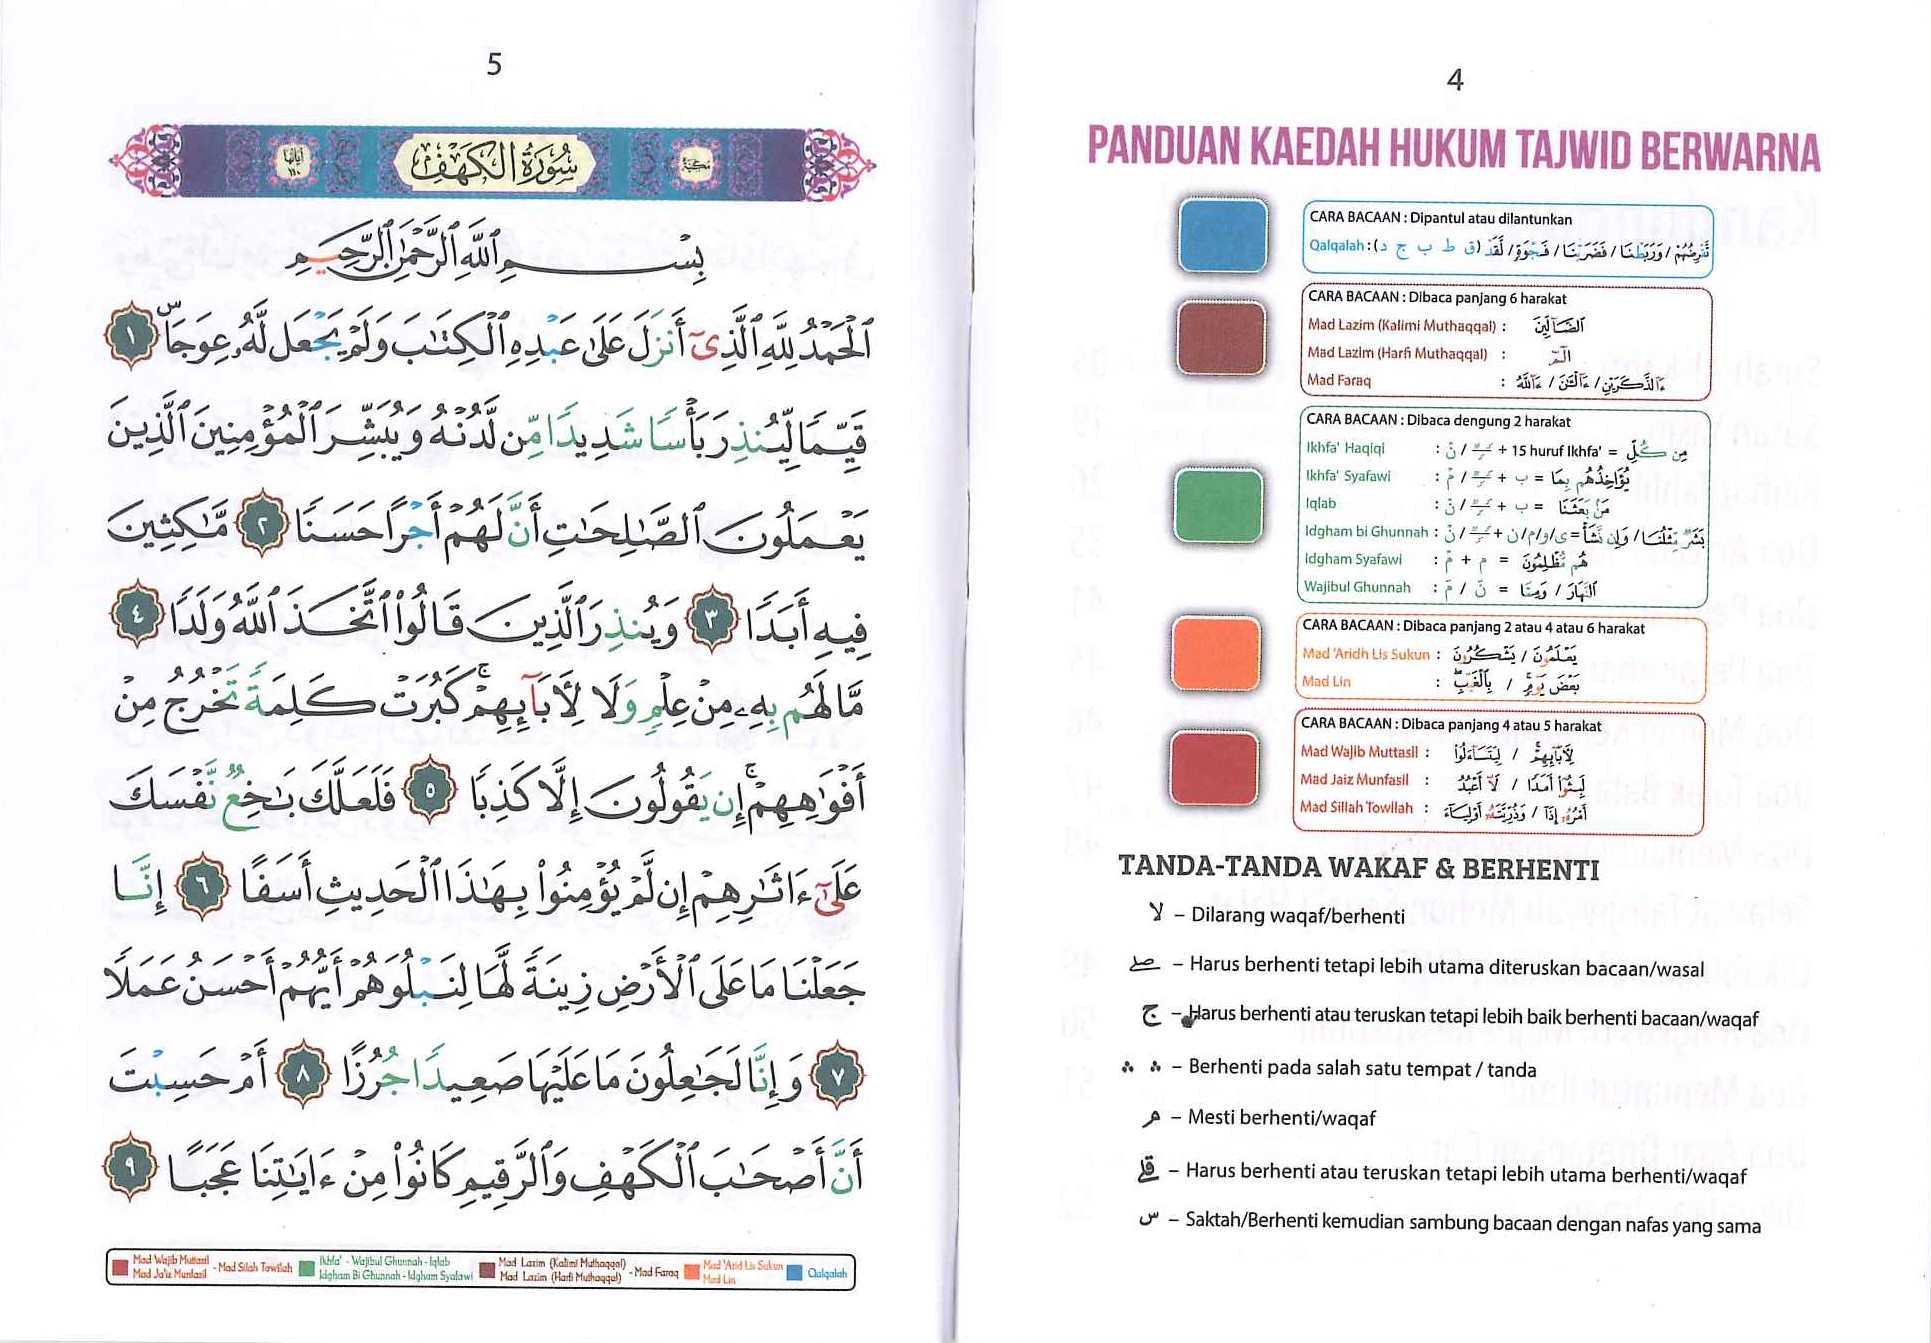 4
PANDUAN KAEDAH HUKUM TAJWID BERWARNA
CARA BACAAN : Dipantul atau dilantunkan
Qalqalah : (ق ط ب ج د) تَّقْرِضُهُمْ / وَرَبَطْنَا / فَضَرَبْنَا / فَجْوَةٍ / لَقَدْ
CARA BACAAN : Dibaca panjang 6 harakat
Mad Lazim (Kalimi Muthaqqal) : الضَّآلِّينَ
Mad Lazim (Harfi Muthaqqal) : الٓمٓ
Mad Faraq : ءَآلذَّكَرَيْنِ / ءَآلْـَٰٔنَ / ءَآللَّهُ
CARA BACAAN : Dibaca dengung 2 harakat
Ikhfa' Haqiqi : نْ / + 15 huruf Ikhfa' = مِن كُلِّ
Ikhfa' Syafawi : مْ / + ب = يُؤَاخِذُهُم بِمَا
Iqlab : نْ / + ب = مَنۢ بَعَثَنَا
Idgham bi Ghunnah : نْ / + ى/و/م/ن = بَشَرٌ مِّثْلُنَا / وَإِن نَّشَأْ
Idgham Syafawi : مْ + م = هُم مُّظْلِمُونَ
Wajibul Ghunnah : نّ / مّ = النَّهَارَ / وَمِمَّا
CARA BACAAN : Dibaca panjang 2 atau 4 atau 6 harakat
Mad 'Aridh Lis Sukun : يَعْلَمُونَ / يَشْكُرُونَ
Mad Lin : بَعْضَ يَوْمٍ / بِالْغَيْبِ
CARA BACAAN : Dibaca panjang 4 atau 5 harakat
Mad Wajib Muttasil : لِأَبَآئِهِمْ / لِيَتَسَآءَلُوا۟
Mad Jaiz Munfasil : لَبِثُوٓا۟ أَمَدًا / لَآ أَعْبُدُ
Mad Sillah Towilah : أَمْرُهُۥٓ إِذَآ / وَذُرِّيَّتَهُۥٓ أَوْلِيَآءَ
TANDA-TANDA WAKAF & BERHENTI
لا – Dilarang waqaf/berhenti
صلے – Harus berhenti tetapi lebih utama diteruskan bacaan/wasal
ج – Harus berhenti atau teruskan tetapi lebih baik berhenti bacaan/waqaf
∴ ∴ – Berhenti pada salah satu tempat / tanda
م – Mesti berhenti/waqaf
قلے – Harus berhenti atau teruskan tetapi lebih utama berhenti/waqaf
س – Saktah/Berhenti kemudian sambung bacaan dengan nafas yang sama
5
مَكِّيَّة سُورَةُ الْكَهْفِ آيَاتُهَا ١١٠
بِسْمِ ٱللَّهِ ٱلرَّحْمَٰنِ ٱلرَّحِيمِ
ٱلْحَمْدُ لِلَّهِ ٱلَّذِىٓ أَنزَلَ عَلَىٰ عَبْدِهِ ٱلْكِتَٰبَ وَلَمْ يَجْعَل لَّهُۥ عِوَجَاۜ ١
قَيِّمًا لِّيُنذِرَ بَأْسًا شَدِيدًا مِّن لَّدُنْهُ وَيُبَشِّرَ ٱلْمُؤْمِنِينَ ٱلَّذِينَ
يَعْمَلُونَ ٱلصَّٰلِحَٰتِ أَنَّ لَهُمْ أَجْرًا حَسَنًا ٢ مَّٰكِثِينَ
فِيهِ أَبَدًا ٣ وَيُنذِرَ ٱلَّذِينَ قَالُوا۟ ٱتَّخَذَ ٱللَّهُ وَلَدًا ٤
مَّا لَهُم بِهِۦ مِنْ عِلْمٍ وَلَا لِأَبَآئِهِمْ ۚ كَبُرَتْ كَلِمَةً تَخْرُجُ مِنْ
أَفْوَٰهِهِمْ ۚ إِن يَقُولُونَ إِلَّا كَذِبًا ٥ فَلَعَلَّكَ بَٰخِعٌ نَّفْسَكَ
عَلَىٰٓ ءَاثَٰرِهِمْ إِن لَّمْ يُؤْمِنُوا۟ بِهَٰذَا ٱلْحَدِيثِ أَسَفًا ٦ إِنَّا
جَعَلْنَا مَا عَلَى ٱلْأَرْضِ زِينَةً لَّهَا لِنَبْلُوَهُمْ أَيُّهُمْ أَحْسَنُ عَمَلًا
٧ وَإِنَّا لَجَٰعِلُونَ مَا عَلَيْهَا صَعِيدًا جُرُزًا ٨ أَمْ حَسِبْتَ
أَنَّ أَصْحَٰبَ ٱلْكَهْفِ وَٱلرَّقِيمِ كَانُوا۟ مِنْ ءَايَٰتِنَا عَجَبًا ٩
Mad Wajib Muttasil Mad Ja'iz Munfasil - Mad Silah Towilah
Ikhfa' - Wajibul Ghunnah - Iqlab Idgham Bi Ghunnah - Idgham Syafawi
Mad Lazim (Kalimi Muthaqqal) Mad Lazim (Harfi Muthaqqal) - Mad Faraq
Mad 'Arid Lis Sukun Mad Lin
Qalqalah